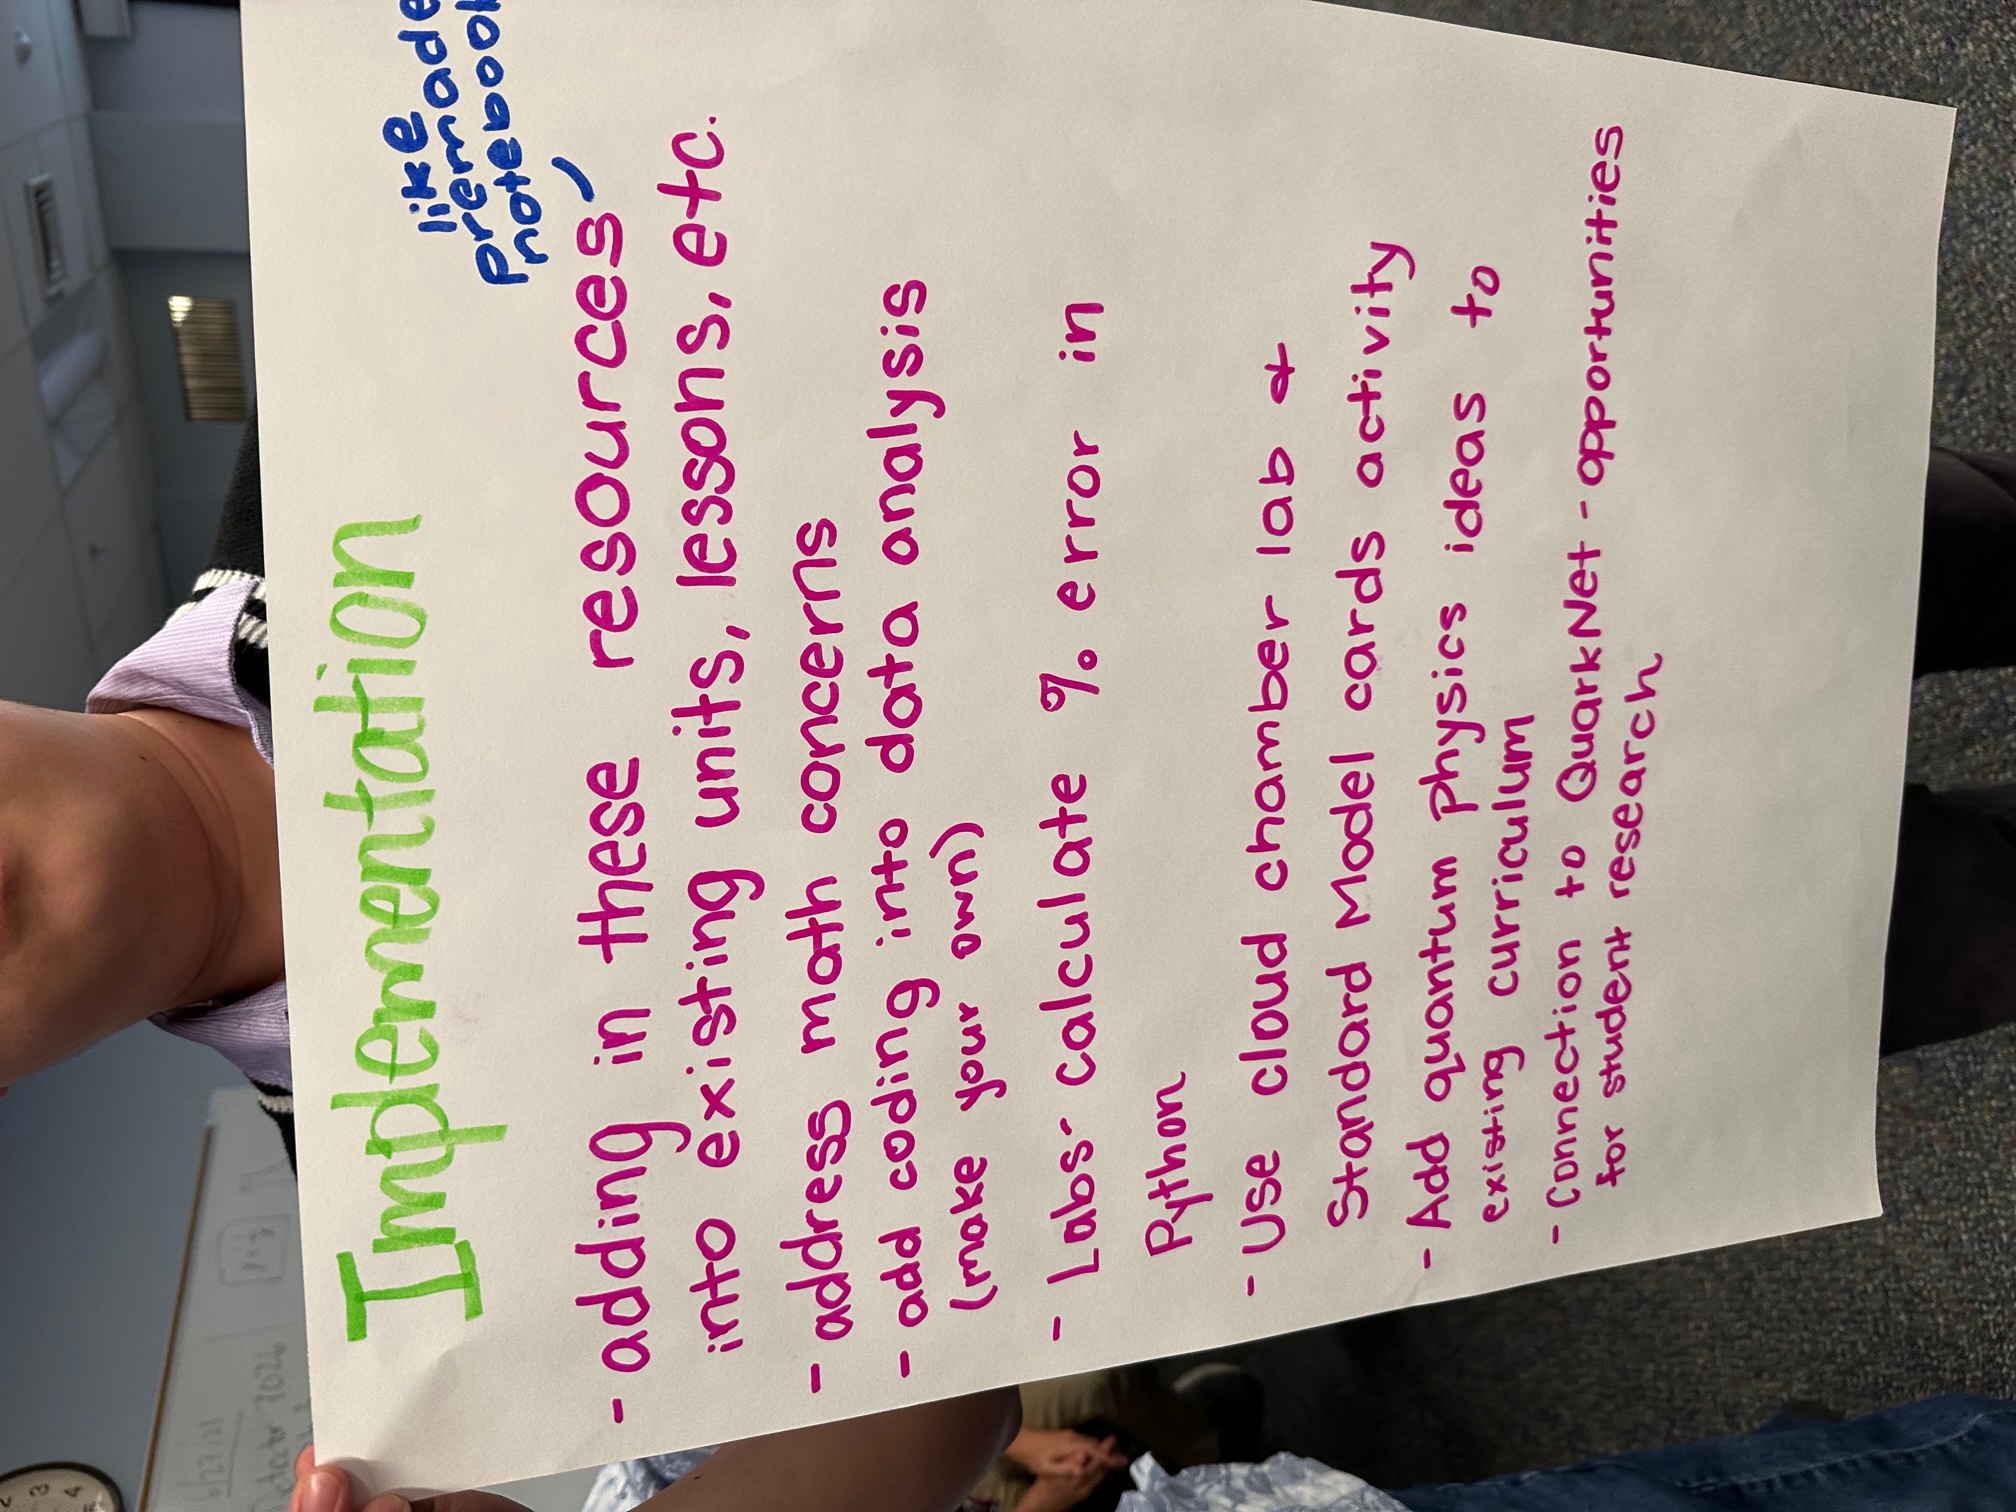 Implementation
like
premade
notebook
- adding in these resources
into existing units, lessons, etc.
- address math concerns
- add coding into data analysis
(make your own)
- Labs - calculate % error in
Python
- Use cloud chamber lab &
Standard Model cards activity
- Add quantum physics ideas to
existing curriculum
- Connection to QuarkNet - opportunities
for student research
6/27/23
3
4